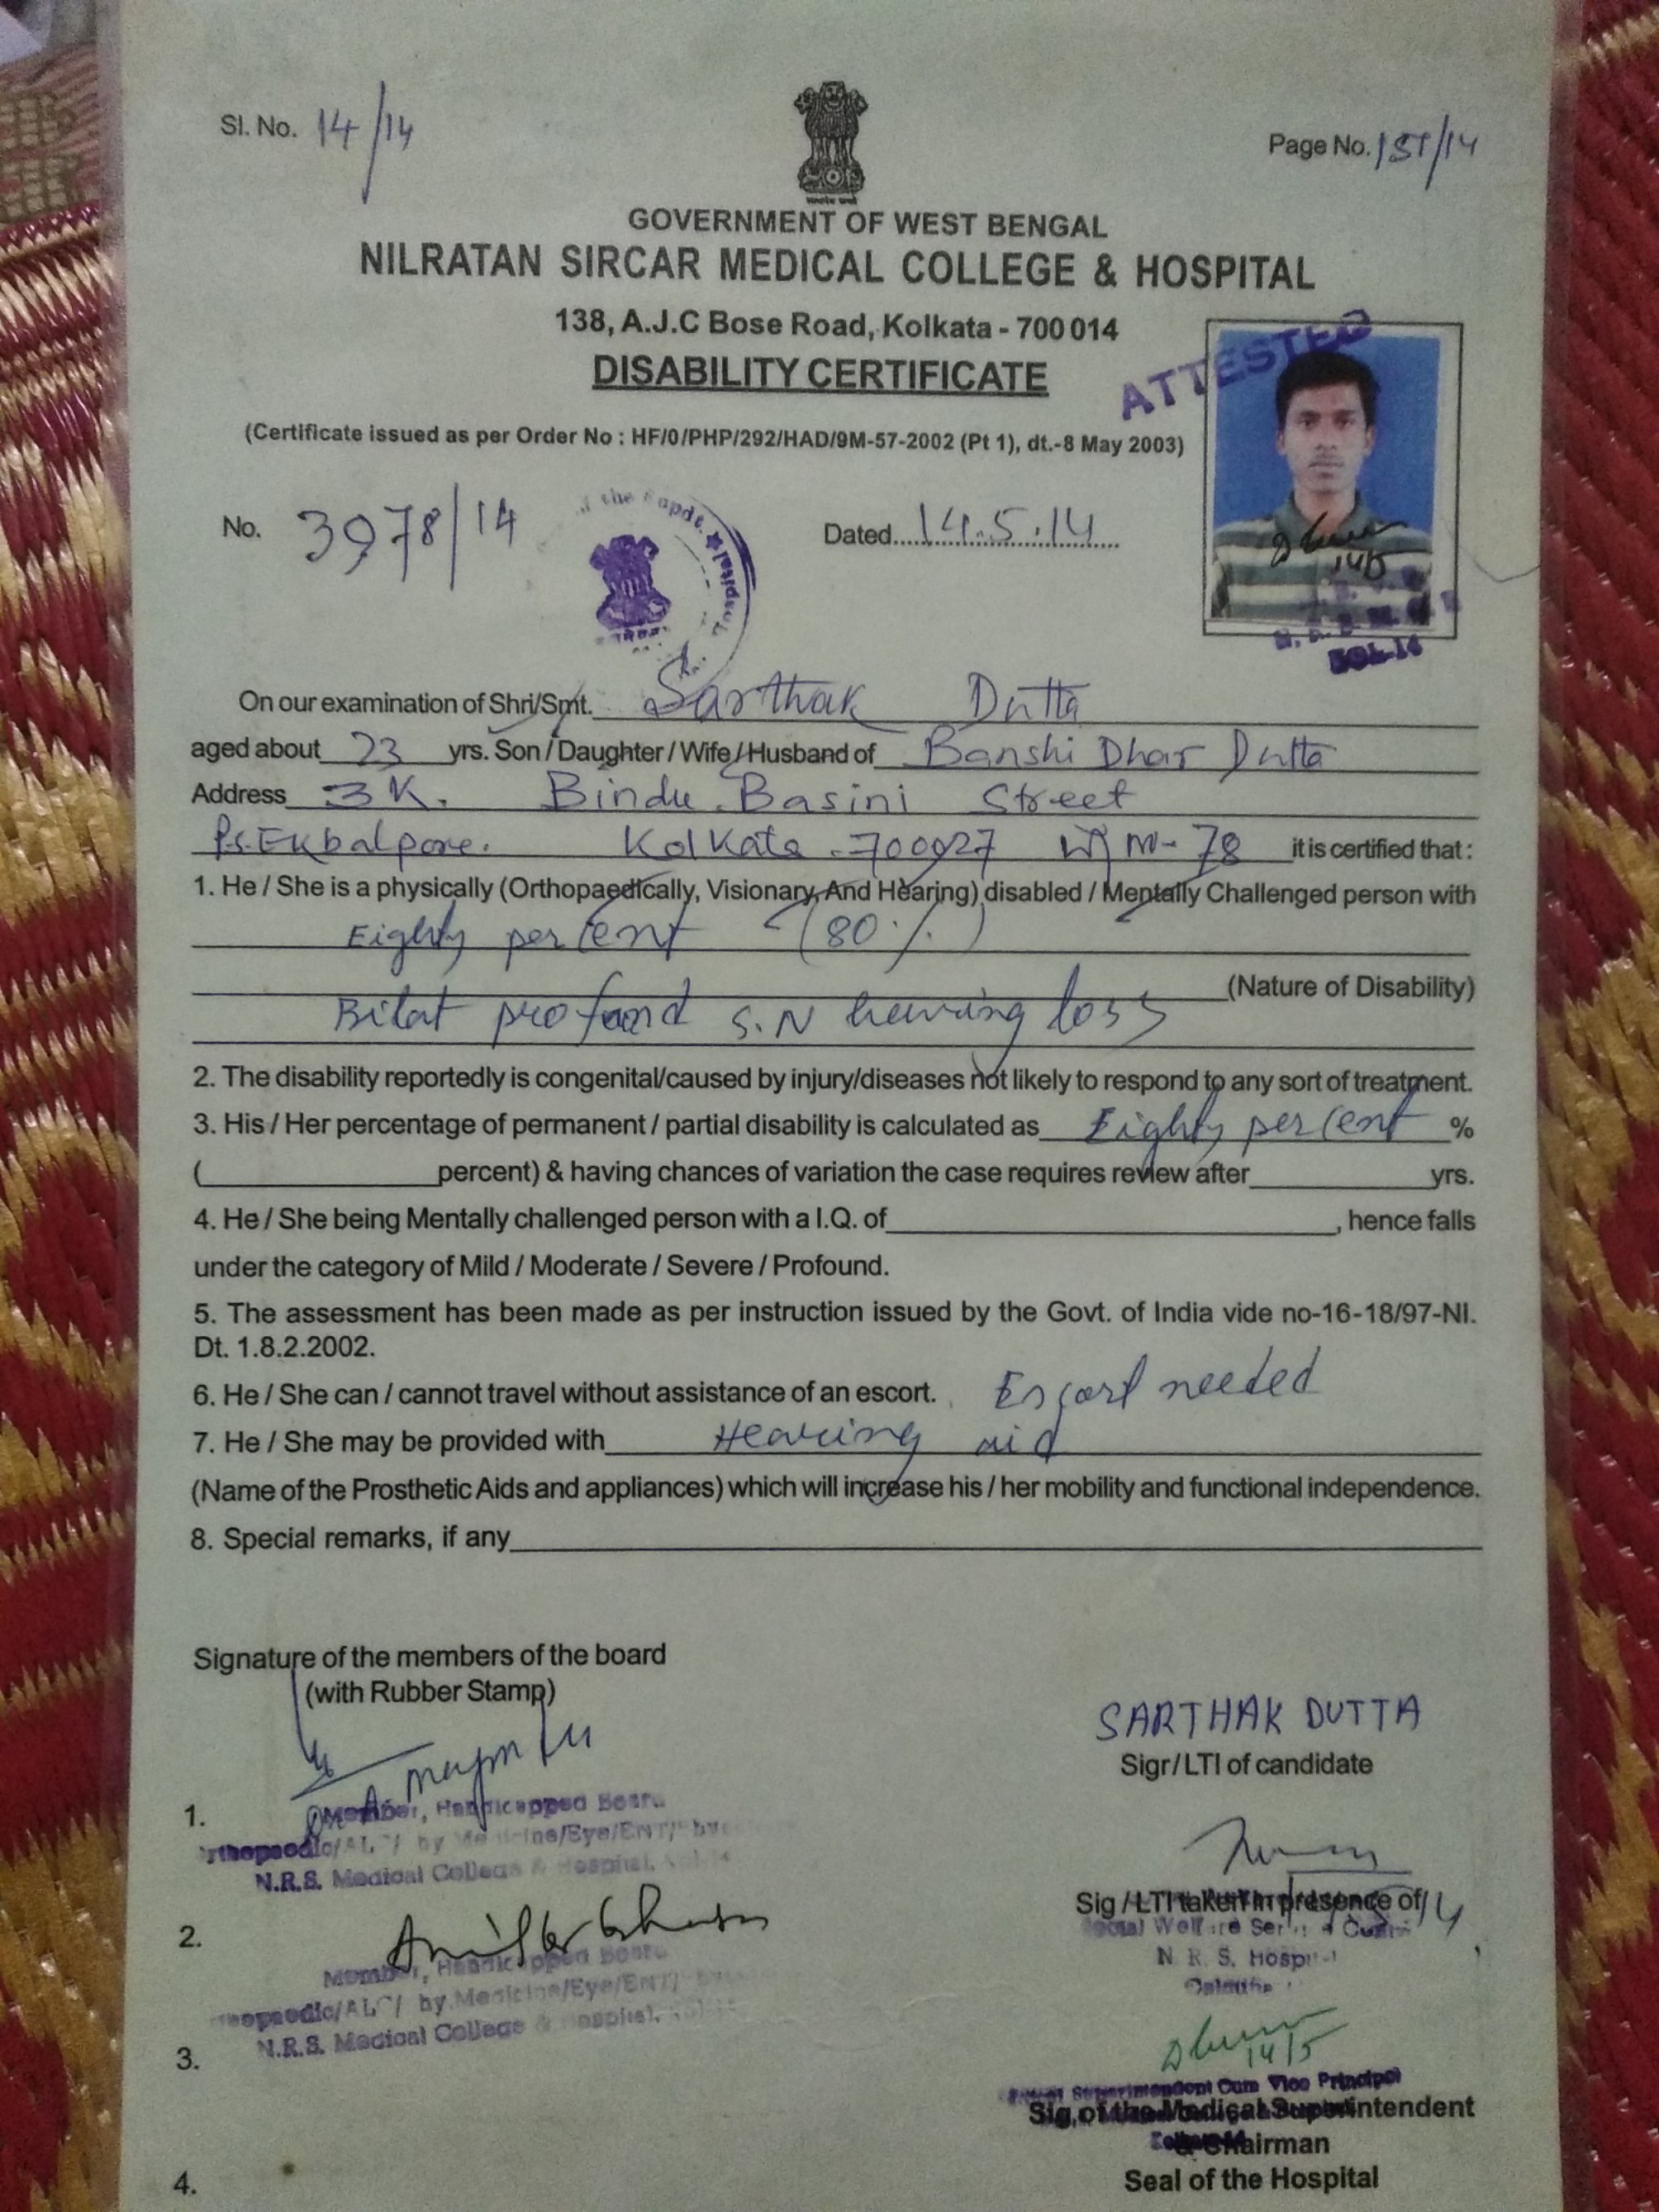 Sl. No. 14/14
Page No. 151/14
GOVERNMENT OF WEST BENGAL
NILRATAN SIRCAR MEDICAL COLLEGE & HOSPITAL
138, A.J.C Bose Road, Kolkata - 700 014
DISABILITY CERTIFICATE
ATTESTED
(Certificate issued as per Order No : HF/0/PHP/292/HAD/9M-57-2002 (Pt 1), dt.-8 May 2003)
No. 3978/14
Dated 14.5.14
On our examination of Shri/Smt. Sarthak Dutta
aged about 23 yrs. Son / Daughter / Wife / Husband of Banshi Dhar Dutta
Address 3K. Bindu Basini Street
P.S. Ekbalpore. Kolkata - 700027 W/m- 78 it is certified that :
1. He / She is a physically (Orthopaedically, Visionary And Hearing) disabled / Mentally Challenged person with
Eighty per cent (80%)
(Nature of Disability)
Bilat profound S.N hearing loss
2. The disability reportedly is congenital/caused by injury/diseases not likely to respond to any sort of treatment.
3. His / Her percentage of permanent / partial disability is calculated as Eighty per cent %
( percent) & having chances of variation the case requires review after yrs.
4. He / She being Mentally challenged person with a I.Q. of , hence falls
under the category of Mild / Moderate / Severe / Profound.
5. The assessment has been made as per instruction issued by the Govt. of India vide no-16-18/97-NI.
Dt. 1.8.2.2002.
6. He / She can / cannot travel without assistance of an escort. Escort needed
7. He / She may be provided with Hearing aid
(Name of the Prosthetic Aids and appliances) which will increase his / her mobility and functional independence.
8. Special remarks, if any
Signature of the members of the board
(with Rubber Stamp)
SARTHAK DUTTA
Sigr/LTI of candidate
1.
Member, Handicapped Board
N.R.S. Medical College & Hospital,
Sig / LTI taken in presence of
N. R. S. Hospital
2.
Member, Handicapped Board
N.R.S. Medical College & Hospital,
14/5
3.
Superintendent Cum Vice Principal
Sig of the Medical Superintendent
& Chairman
Seal of the Hospital
4.